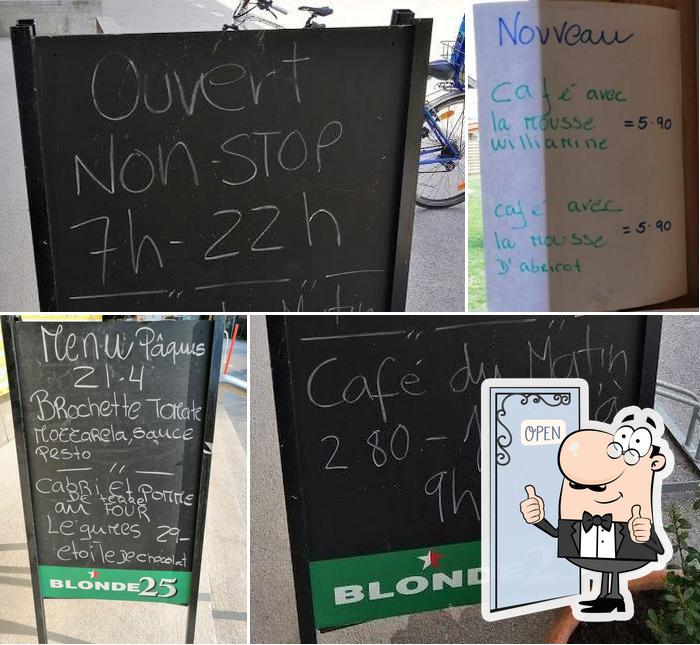 Ouvert
NON-STOP
7h-22h
Nouveau
Café avec
la mousse =5.90
williamine
café avec
la mousse =5.90
D'abricot
Menu Pâques
21.4
Brochette Tomate
Mozzarela, Sauce
Pesto
CABRI Et POMME
DE terre
au FOUR
Légumes 29-
étoile De chocolat
BLONDE 25
Café du Matin
2 80 -
9h
BLOND
OPEN